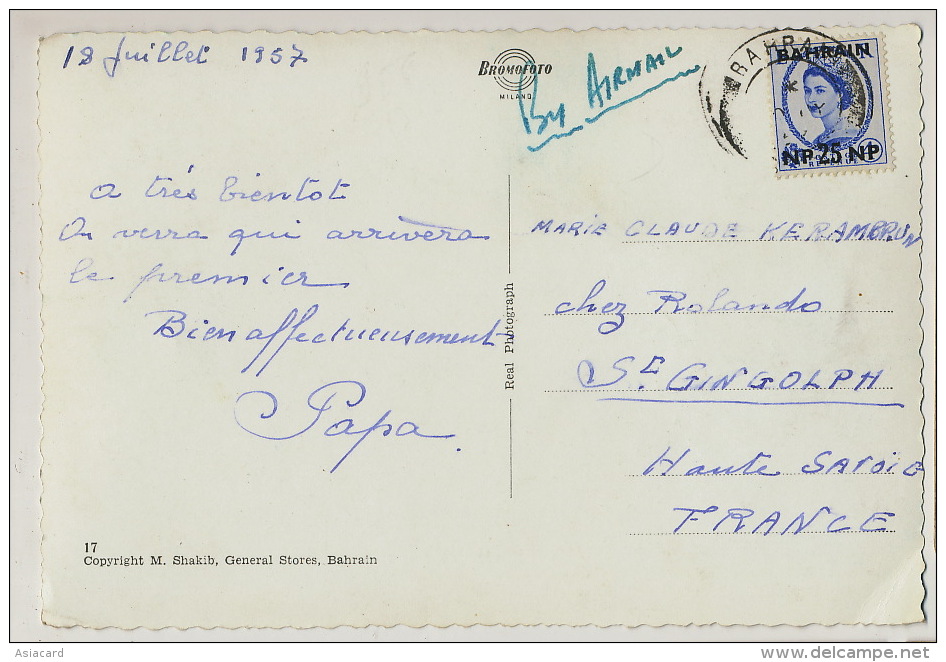 18 Juillet 1957
BROMOFOTO
MILANO
By AIRMAIL
BAHRAIN
NP 25 NP
a très bientot
On verra qui arrivera
le premier
Bien affectueusement
Papa.
Real Photograph
MARIE CLAUDE KERAMBRUN
chez Rolando
St. GINGOLPH
Haute SAVOIE
FRANCE
17
Copyright M. Shakib, General Stores, Bahrain
Asiacard
www.delcampe.net